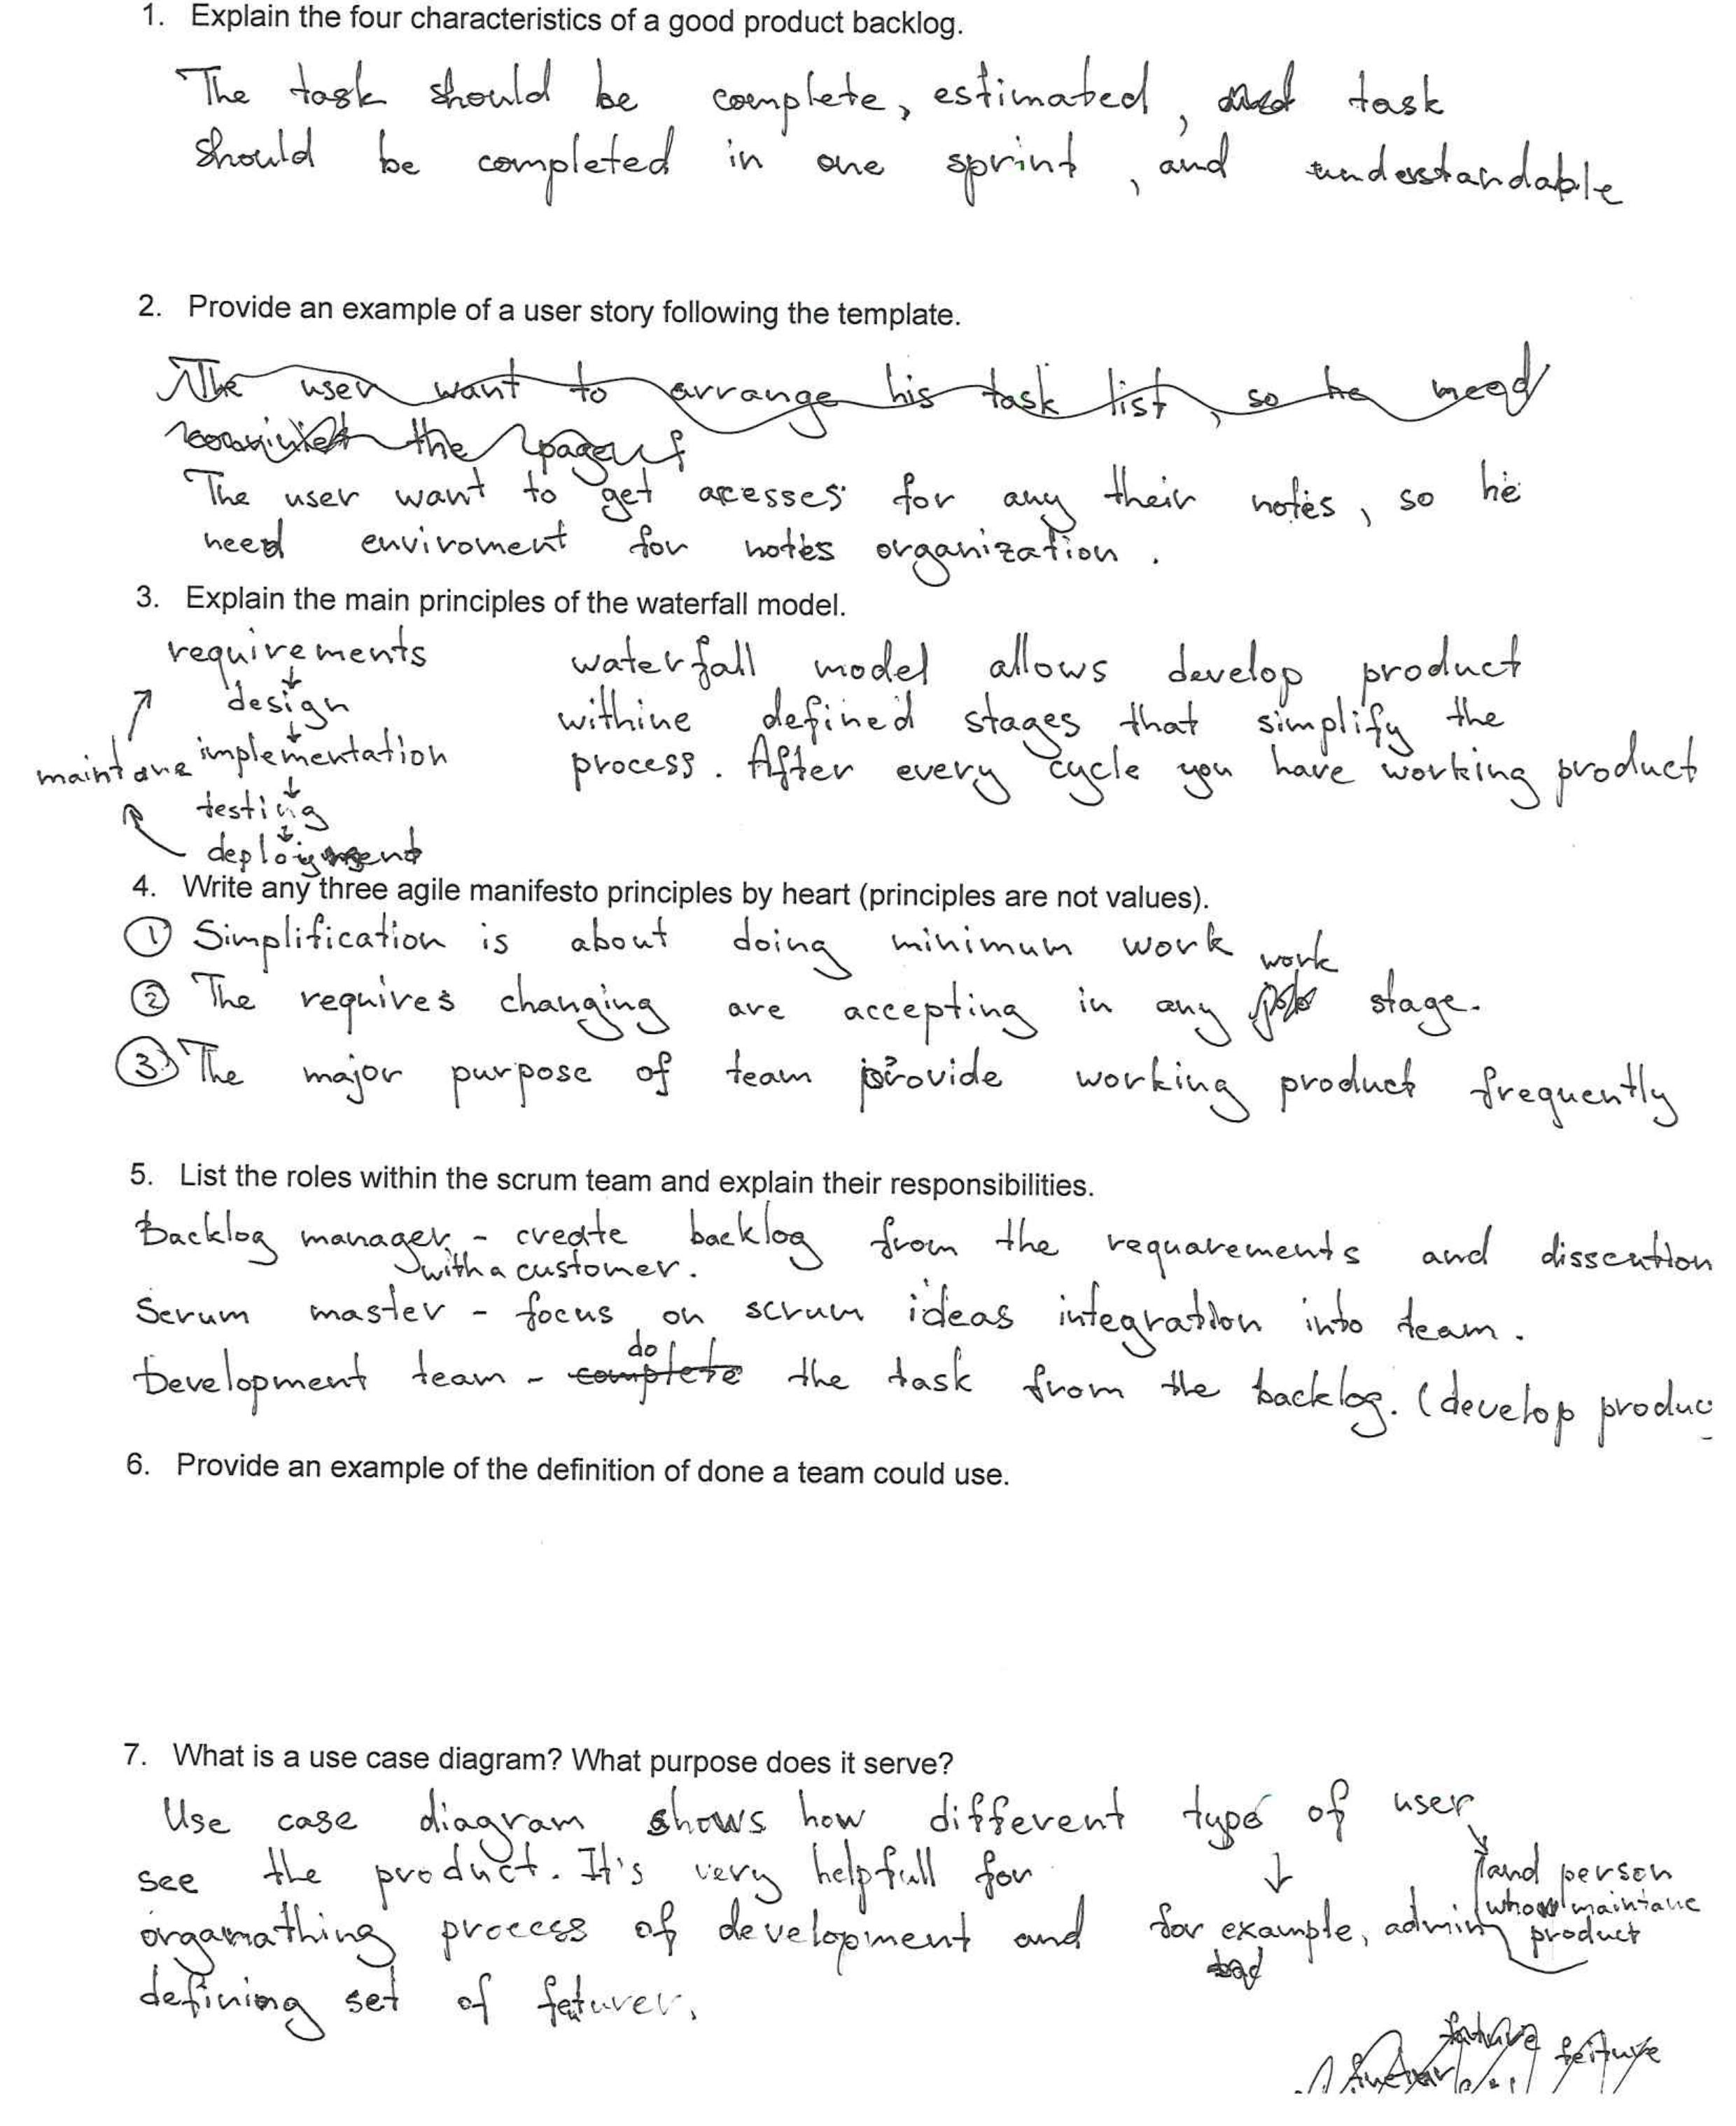 1. Explain the four characteristics of a good product backlog.
The task should be complete, estimated, task
should be completed in one sprint, and understandable
2. Provide an example of a user story following the template.
The user want to arrange his task list, so he need
the
The user want to get acesses for any their notes, so he
need enviroment for notes organization.
3. Explain the main principles of the waterfall model.
requirements
↓
design
↓
implementation
↓
testing
↓
deployment
maintane
waterfall model allows develop product
withine defined stages that simplify the
process. After every cycle you have working product
4. Write any three agile manifesto principles by heart (principles are not values).
① Simplification is about doing minimum work
② The requires changing are accepting in any work stage.
③ The major purpose of team provide working product frequently
5. List the roles within the scrum team and explain their responsibilities.
Backlog manager - create backlog from the requarements and
with a customer.
Scrum master - focus on scrum ideas integration into team.
Development team - complete do the task from the backlog. (develop produc
6. Provide an example of the definition of done a team could use.
7. What is a use case diagram? What purpose does it serve?
Use case diagram shows how different type of user
see the product. It's very helpfull for
process of development and
defining set of
↓
for example, admin
and person
who maintane
product
feiture